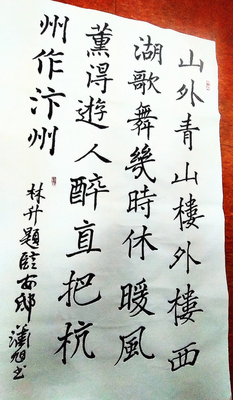 山外青山樓外樓西
湖歌舞幾時休暖風
薰得遊人醉直把杭
州作汴州
林升題臨安邸 旭书